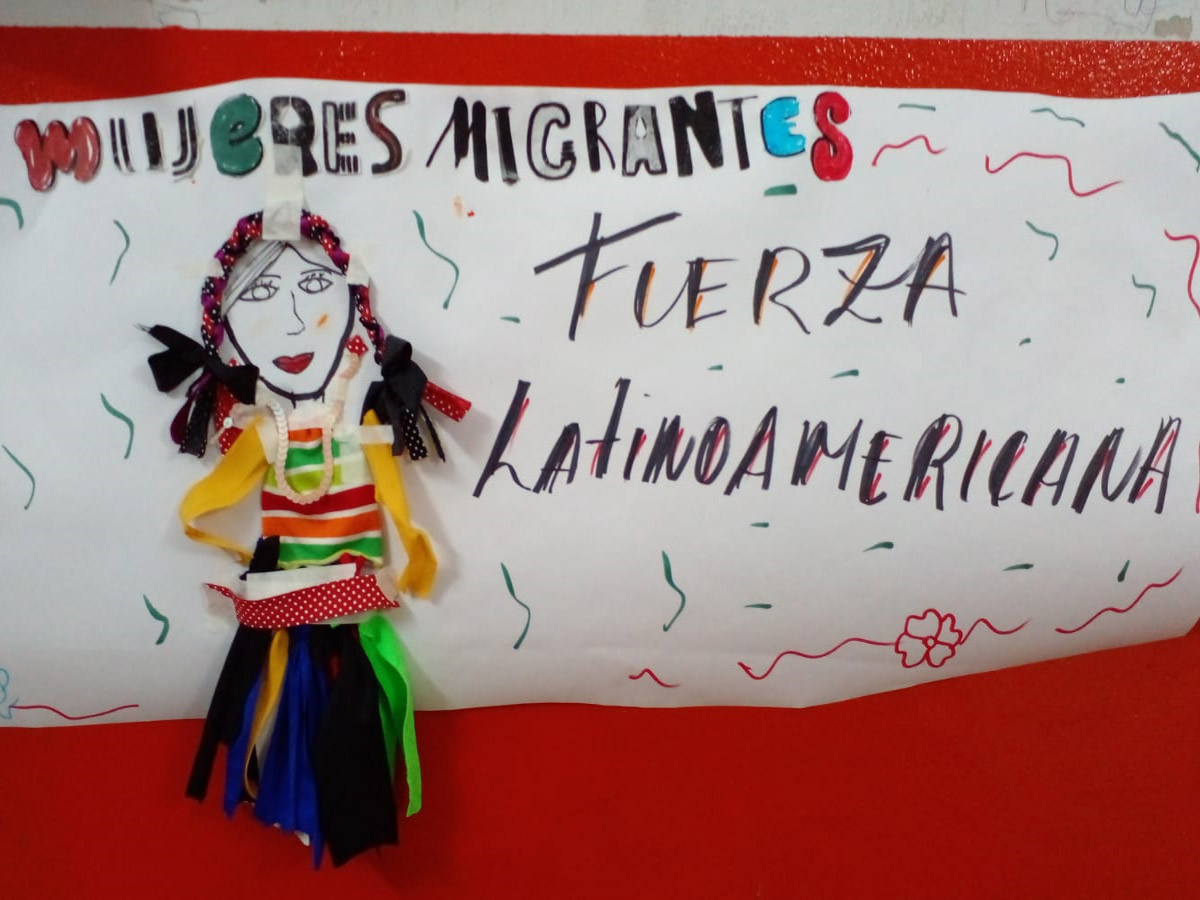 MUJeRES MIGRANTES
FUERZA
LatINOAMERICANA